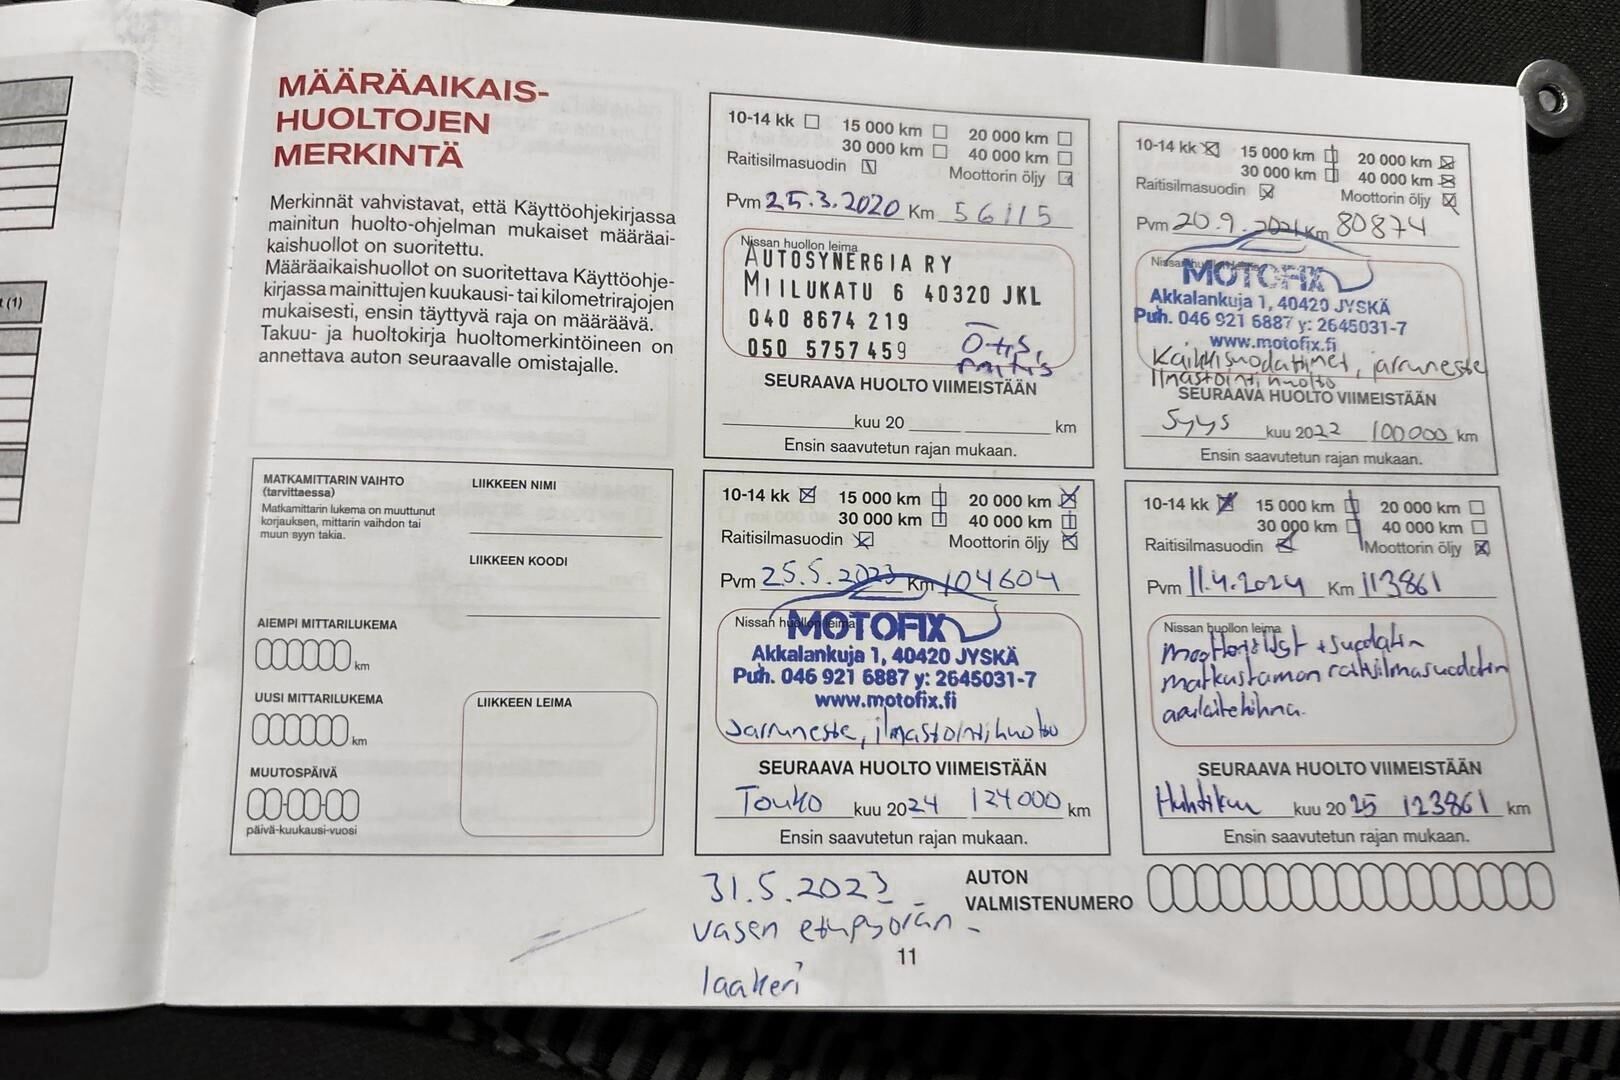 (1)
MÄÄRÄAIKAIS-
HUOLTOJEN
MERKINTÄ
Merkinnät vahvistavat, että Käyttöohjekirjassa
mainitun huolto-ohjelman mukaiset määräai-
kaishuollot on suoritettu.
Määräaikaishuollot on suoritettava Käyttöohje-
kirjassa mainittujen kuukausi- tai kilometrirajojen
mukaisesti, ensin täyttyvä raja on määräävä.
Takuu- ja huoltokirja huoltomerkintöineen on
annettava auton seuraavalle omistajalle.
MATKAMITTARIN VAIHTO
(tarvittaessa)
Matkamittarin lukema on muuttunut
korjauksen, mittarin vaihdon tai
muun syyn takia.
LIIKKEEN NIMI
LIIKKEEN KOODI
AIEMPI MITTARILUKEMA
km
UUSI MITTARILUKEMA
km
MUUTOSPÄIVÄ
päivä-kuukausi-vuosi
LIIKKEEN LEIMA
10-14 kk 15 000 km 20 000 km
30 000 km 40 000 km
Raitisilmasuodin Moottorin öljy
Pvm 25.3.2020 Km 56115
Nissan huollon leima
AUTOSYNERGIA RY
MIILUKATU 6 40320 JKL
040 8674 219
050 5757459
SEURAAVA HUOLTO VIIMEISTÄÄN
kuu 20 km
Ensin saavutetun rajan mukaan.
10-14 kk 15 000 km 20 000 km
30 000 km 40 000 km
Raitisilmasuodin Moottorin öljy
Pvm 20.9.2021 Km 80874
MOTOFIX
Akkalankuja 1, 40420 JYSKÄ
Puh. 046 921 6887 y: 2645031-7
www.motofix.fi
Kaikki suodattimet, jarruneste
Ilmastointihuolto
SEURAAVA HUOLTO VIIMEISTÄÄN
Syys kuu 2022 100000 km
Ensin saavutetun rajan mukaan.
10-14 kk 15 000 km 20 000 km
30 000 km 40 000 km
Raitisilmasuodin Moottorin öljy
Pvm 25.5.2023 Km 104604
Nissan huollon leima
MOTOFIX
Akkalankuja 1, 40420 JYSKÄ
Puh. 046 921 6887 y: 2645031-7
www.motofix.fi
Jarruneste, ilmastointihuolto
SEURAAVA HUOLTO VIIMEISTÄÄN
Touko kuu 2024 124000 km
Ensin saavutetun rajan mukaan.
10-14 kk 15 000 km 20 000 km
30 000 km 40 000 km
Raitisilmasuodin Moottorin öljy
Pvm 11.4.2024 Km 113861
Nissan huollon leima
moottoriöljyt + suodatin
matkustamon raitisilmasuodatin
apulaitehihna.
SEURAAVA HUOLTO VIIMEISTÄÄN
Huhtikuu kuu 2025 123861 km
Ensin saavutetun rajan mukaan.
31.5.2023
vasen etupyörän -
laakeri
AUTON
VALMISTENUMERO
11